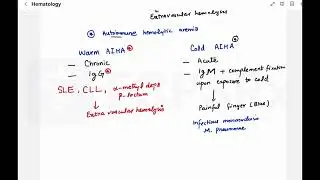 Hematology
Extravascular hemolysis
Autoimmune hemolytic anemia
Warm AIHA
— Chronic
— IgG
SLE, CLL, α-methyl dopa
β-lactum
Extra vascular hemolysis
Cold AIHA
— Acute
— IgM + complement fixation
upon exposure to cold
Painful finger (Blue)
Infectious mononucleosis
M. pneumoniae